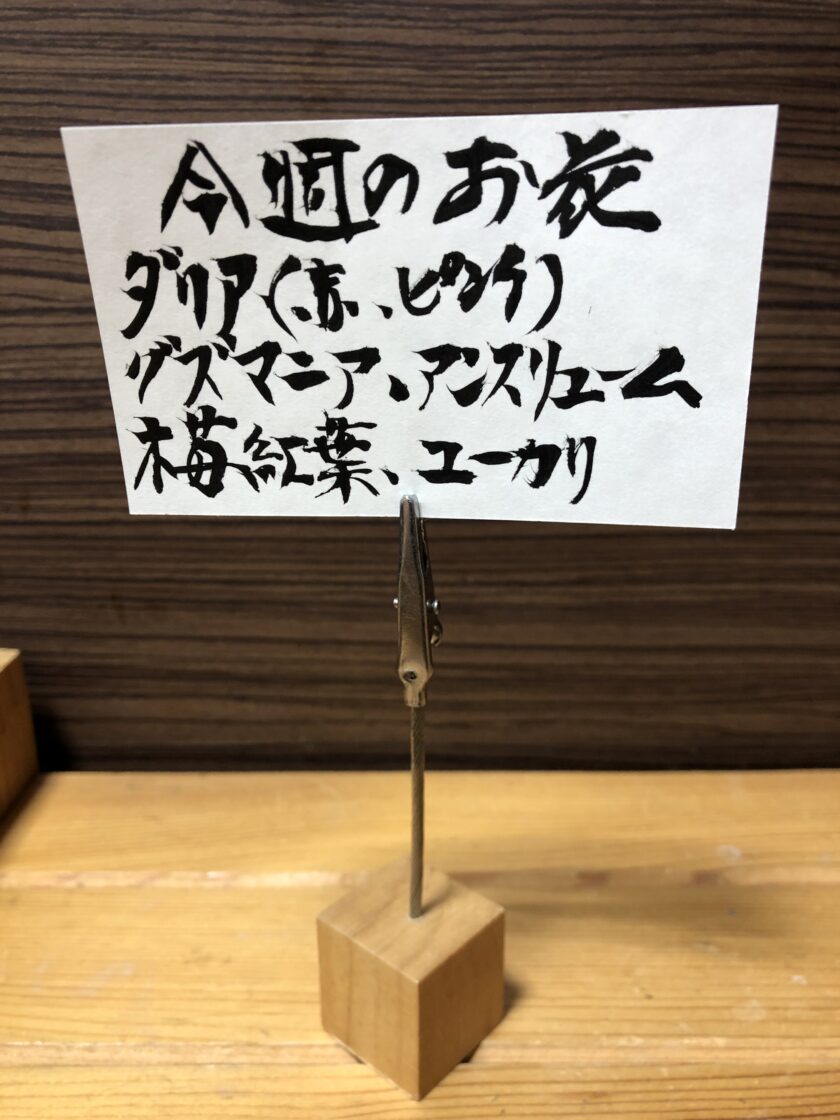 今週のお花
ダリア(赤、ピンク)
グズマニア、アンスリューム
梅紅葉、ユーカリ